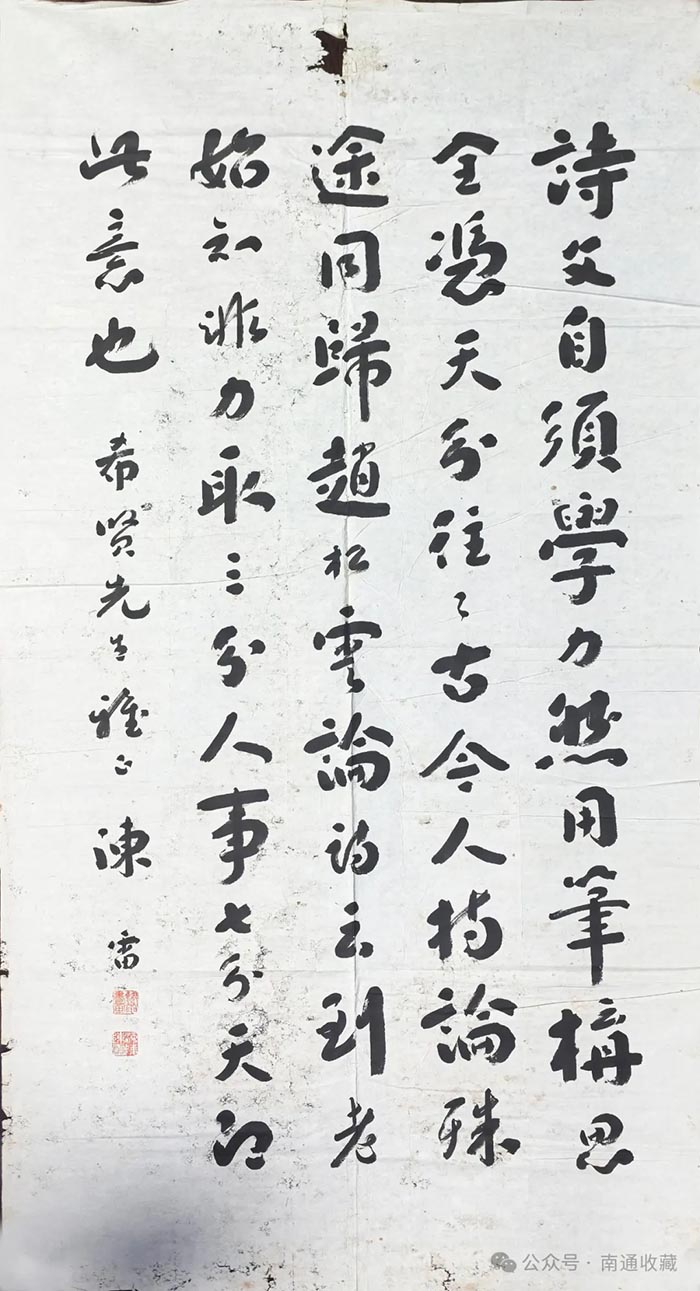 詩文自須學力然用筆構思
全憑天分往〻古今人持論殊
途同歸趙松雲論詩云到老
始知非力取三分人事七分天即
此意也
希賢先生雅正 陳雷
公众号·南通收藏